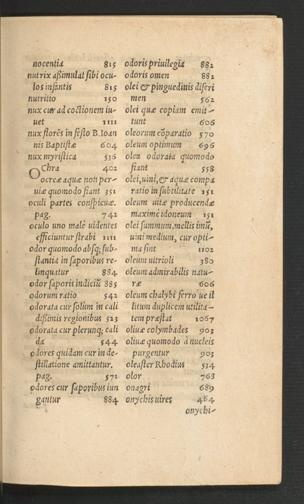 nocentia 815
nutrix aßimulat sibi ocu-
los infantis 815
nutritio 150
nux cur ad coctionem iu-
uet 1111
nux florēs in festo B. Ioan
nis Baptistæ 604
nux myristica 536
OChra 402
ocreæ aquæ non per-
uiæ quomodo fiant 351
oculi partes conspicuæ.
pag. 742
oculo uno malè uidentes
efficiuntur strabi 1111
odor quomodo absq; sub-
stantia in saporibus re-
linquatur 884
odor saporis indiciū 885
odorum ratio 542
odorata cur solùm in cali
dißimis regionibus 523
odorata cur plerunq; cali
da 544
odores quidam cur in de-
stillatione amittantur.
pag. 572
odores cur saporibus iun
gantur 884
odoris priuilegia 882
odoris omen 882
olei & pinguedinis discri
men 562
olei quæ copiam emit-
tunt 606
oleorum cōparatio 570
oleum optimum 696
olea odorata quomodo
fiant 558
olei, uini, & aquæ compa
ratio in subtilitate 151
oleum uitæ producendæ
maximè idoneum 151
olei summum, mellis imū,
uini medium, cur opti-
ma sint 1102
oleum uitrioli 380
oleum admirabilis natu-
ræ 606
oleum chalybi ferro ue il
litum duplicem utilita-
tem præstat 1067
oliuæ colymbades 903
oliuæ quomodo à nucleis
purgentur 903
oleaster Rhodius 534
olor 768
onagri 689
onychis uires 464
onychi-